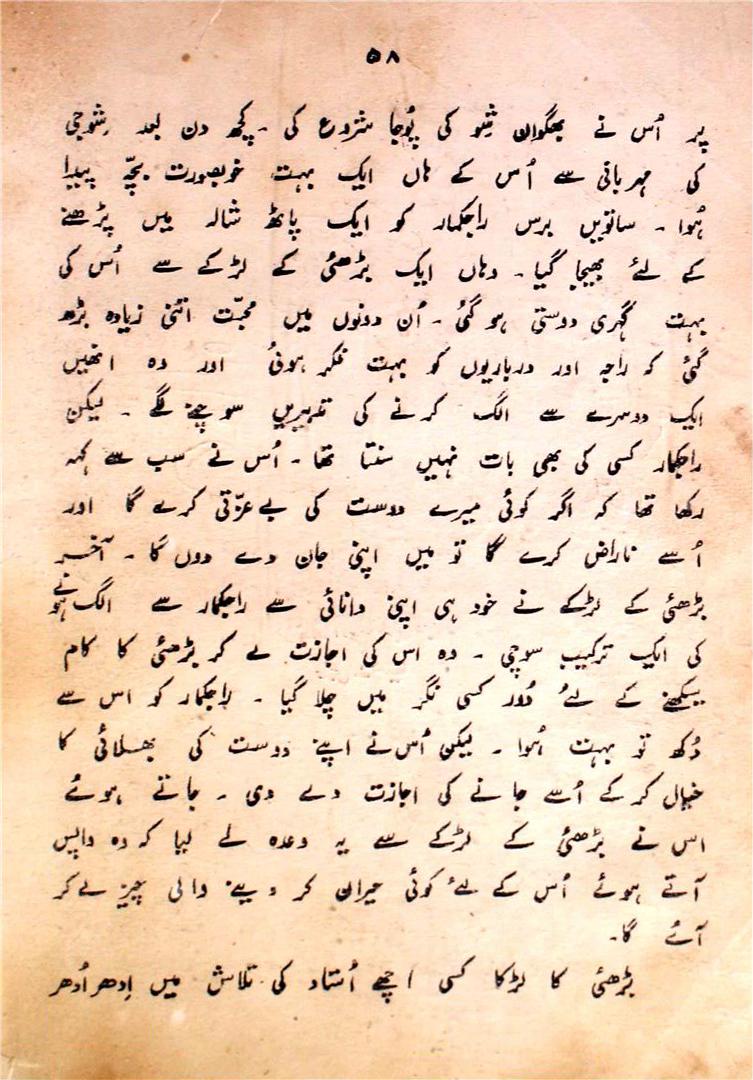 ۵۸
پر اُس نے بھگوان شِو کی پُوجا شروع کی ۔ کچھ دن بعد شوجی
کی مہربانی سے اُس کے ہاں ایک بہت خوبصورت بچّہ پیدا
ہُوا ۔ ساتویں برس راجکمار کو ایک پاٹھ شالہ میں پڑھنے
کے لئے بھیجا گیا ۔ وہاں ایک بڑھئی کے لڑکے سے اُس کی
بہت گہری دوستی ہو گئی ۔ اُن دونوں میں محبّت اتنی زیادہ بڑھ
گئی کہ راجہ اور درباریوں کو بہت فکر ہوئی اور وہ انھیں
ایک دوسرے سے الگ کرنے کی تدبیریں سوچنے لگے ۔ لیکن
راجکمار کسی کی بھی بات نہیں سنتا تھا ۔ اُس نے سب سے کہہ
رکھا تھا کہ اگر کوئی میرے دوست کی بےعزّتی کرے گا اور
اُسے ناراض کرے گا تو میں اپنی جان دے دوں گا ۔ آخر
بڑھئی کے لڑکے نے خود ہی اپنی دانائی سے راجکمار سے الگ ہونے
کی ایک ترکیب سوچی ۔ وہ اس کی اجازت لے کر بڑھئی کا کام
سیکھنے کے لئے دُور کسی نگر میں چلا گیا ۔ راجکمار کو اس سے
دُکھ تو بہت ہُوا ۔ لیکن اُس نے اپنے دوست کی بھلائی کا
خیال کر کے اُسے جانے کی اجازت دے دی ۔ جاتے ہوئے
اس نے بڑھئی کے لڑکے سے یہ وعدہ لے لیا کہ وہ واپس
آتے ہوئے اُس کے لئے کوئی حیران کر دینے والی چیز لے کر
آئے گا ۔
بڑھئی کا لڑکا کسی اچھے اُستاد کی تلاش میں اِدھر اُدھر